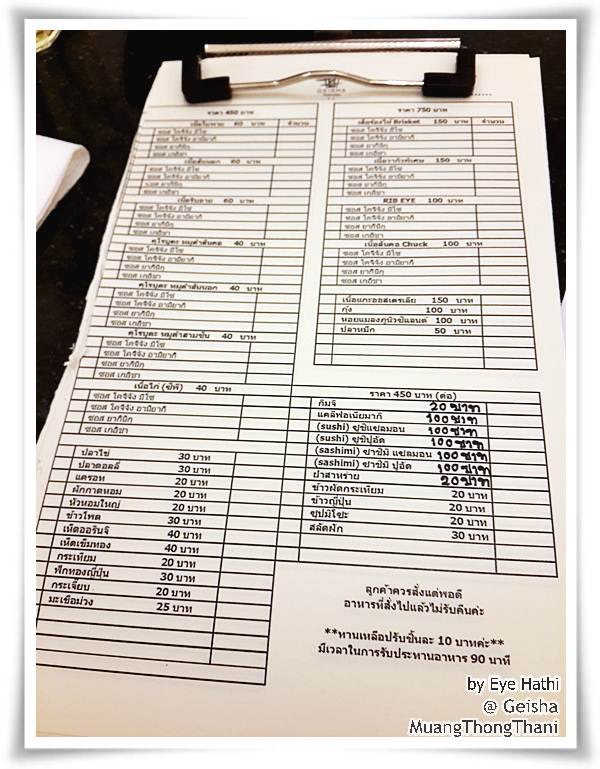 GEISHA
ราคา 450 บาท
เนื้อใบพาย 60 บาท จำนวน
ซอส โคจิจัง มิโซ
ซอส โคจิจัง อามิยากิ
ซอส ยากินิกุ
ซอส เกอิชา
เนื้อสันนอก 60 บาท
ซอส โคจิจัง มิโซ
ซอส โคจิจัง อามิยากิ
ซอส ยากินิกุ
ซอส เกอิชา
60 บาท
ซอส โคจิจัง มิโซ
ซอส โคจิจัง อามิยากิ
ซอส ยากินิกุ
ซอส เกอิชา
คุโรบูตะ หมูดำสันคอ 40 บาท
ซอส โคจิจัง มิโซ
ซอส โคจิจัง อามิยากิ
ซอส ยากินิกุ
ซอส เกอิชา
คุโรบูตะ หมูดำสันนอก 40 บาท
ซอส โคจิจัง มิโซ
ซอส โคจิจัง อามิยากิ
ซอส ยากินิกุ
ซอส เกอิชา
คุโรบูตะ หมูดำสามชั้น 40 บาท
ซอส โคจิจัง มิโซ
ซอส โคจิจัง อามิยากิ
ซอส ยากินิกุ
ซอส เกอิชา
เนื้อไก่ (ซีพี) 40 บาท
ซอส โคจิจัง มิโซ
ซอส โคจิจัง อามิยากิ
ซอส ยากินิกุ
ซอส เกอิชา
ปลาไข่ 30 บาท
ปลาดอลลี่ 30 บาท
แครอท 20 บาท
ผักกาดหอม 20 บาท
หัวหอมใหญ่ 20 บาท
ข้าวโพด 30 บาท
เห็ดออรินจิ 40 บาท
เห็ดเข็มทอง 40 บาท
กระเทียม 20 บาท
ฟักทองญี่ปุ่น 30 บาท
กระเจี๊ยบ 20 บาท
มะเขือม่วง 25 บาท
ราคา 750 บาท
เสือร้องไห้ Brisket 150 บาท จำนวน
ซอส โคจิจัง มิโซ
ซอส โคจิจัง อามิยากิ
ซอส ยากินิกุ
ซอส เกอิชา
เนื้อวากิวพิเศษ 150 บาท
ซอส โคจิจัง มิโซ
ซอส โคจิจัง อามิยากิ
ซอส ยากินิกุ
ซอส เกอิชา
RIB EYE 100 บาท
ซอส โคจิจัง มิโซ
ซอส โคจิจัง อามิยากิ
ซอส ยากินิกุ
ซอส เกอิชา
เนื้อสันคอ Chuck 100 บาท
ซอส โคจิจัง มิโซ
ซอส โคจิจัง อามิยากิ
ซอส ยากินิกุ
ซอส เกอิชา
เนื้อแกะออสเตรเลีย 150 บาท
กุ้ง 100 บาท
หอยแมลงภู่นิวซีแลนด์ 100 บาท
ปลาหมึก 50 บาท
ราคา 450 บาท (ต่อ)
กิมจิ 20 บาท
แคลิฟอเนียมากิ 100 บาท
(sushi) ซูชิแซลมอน 100 บาท
(sushi) ซูชิปูอัด 100 บาท
(sashimi) ซาชิมิ แซลมอน 100 บาท
(sashimi) ซาชิมิ ปูอัด 100 บาท
ยำสาหร่าย 20 บาท
ข้าวผัดกระเทียม 20 บาท
ข้าวญี่ปุ่น 20 บาท
ซุปมิโซะ 20 บาท
สลัดผัก 30 บาท
ลูกค้าควรสั่งแต่พอดี
อาหารที่สั่งไปแล้วไม่รับคืนค่ะ
**ทานเหลือปรับชิ้นละ 10 บาทค่ะ**
มีเวลาในการรับประทานอาหาร 90 นาที
by Eye Hathi
@ Geisha
MuangThongThani